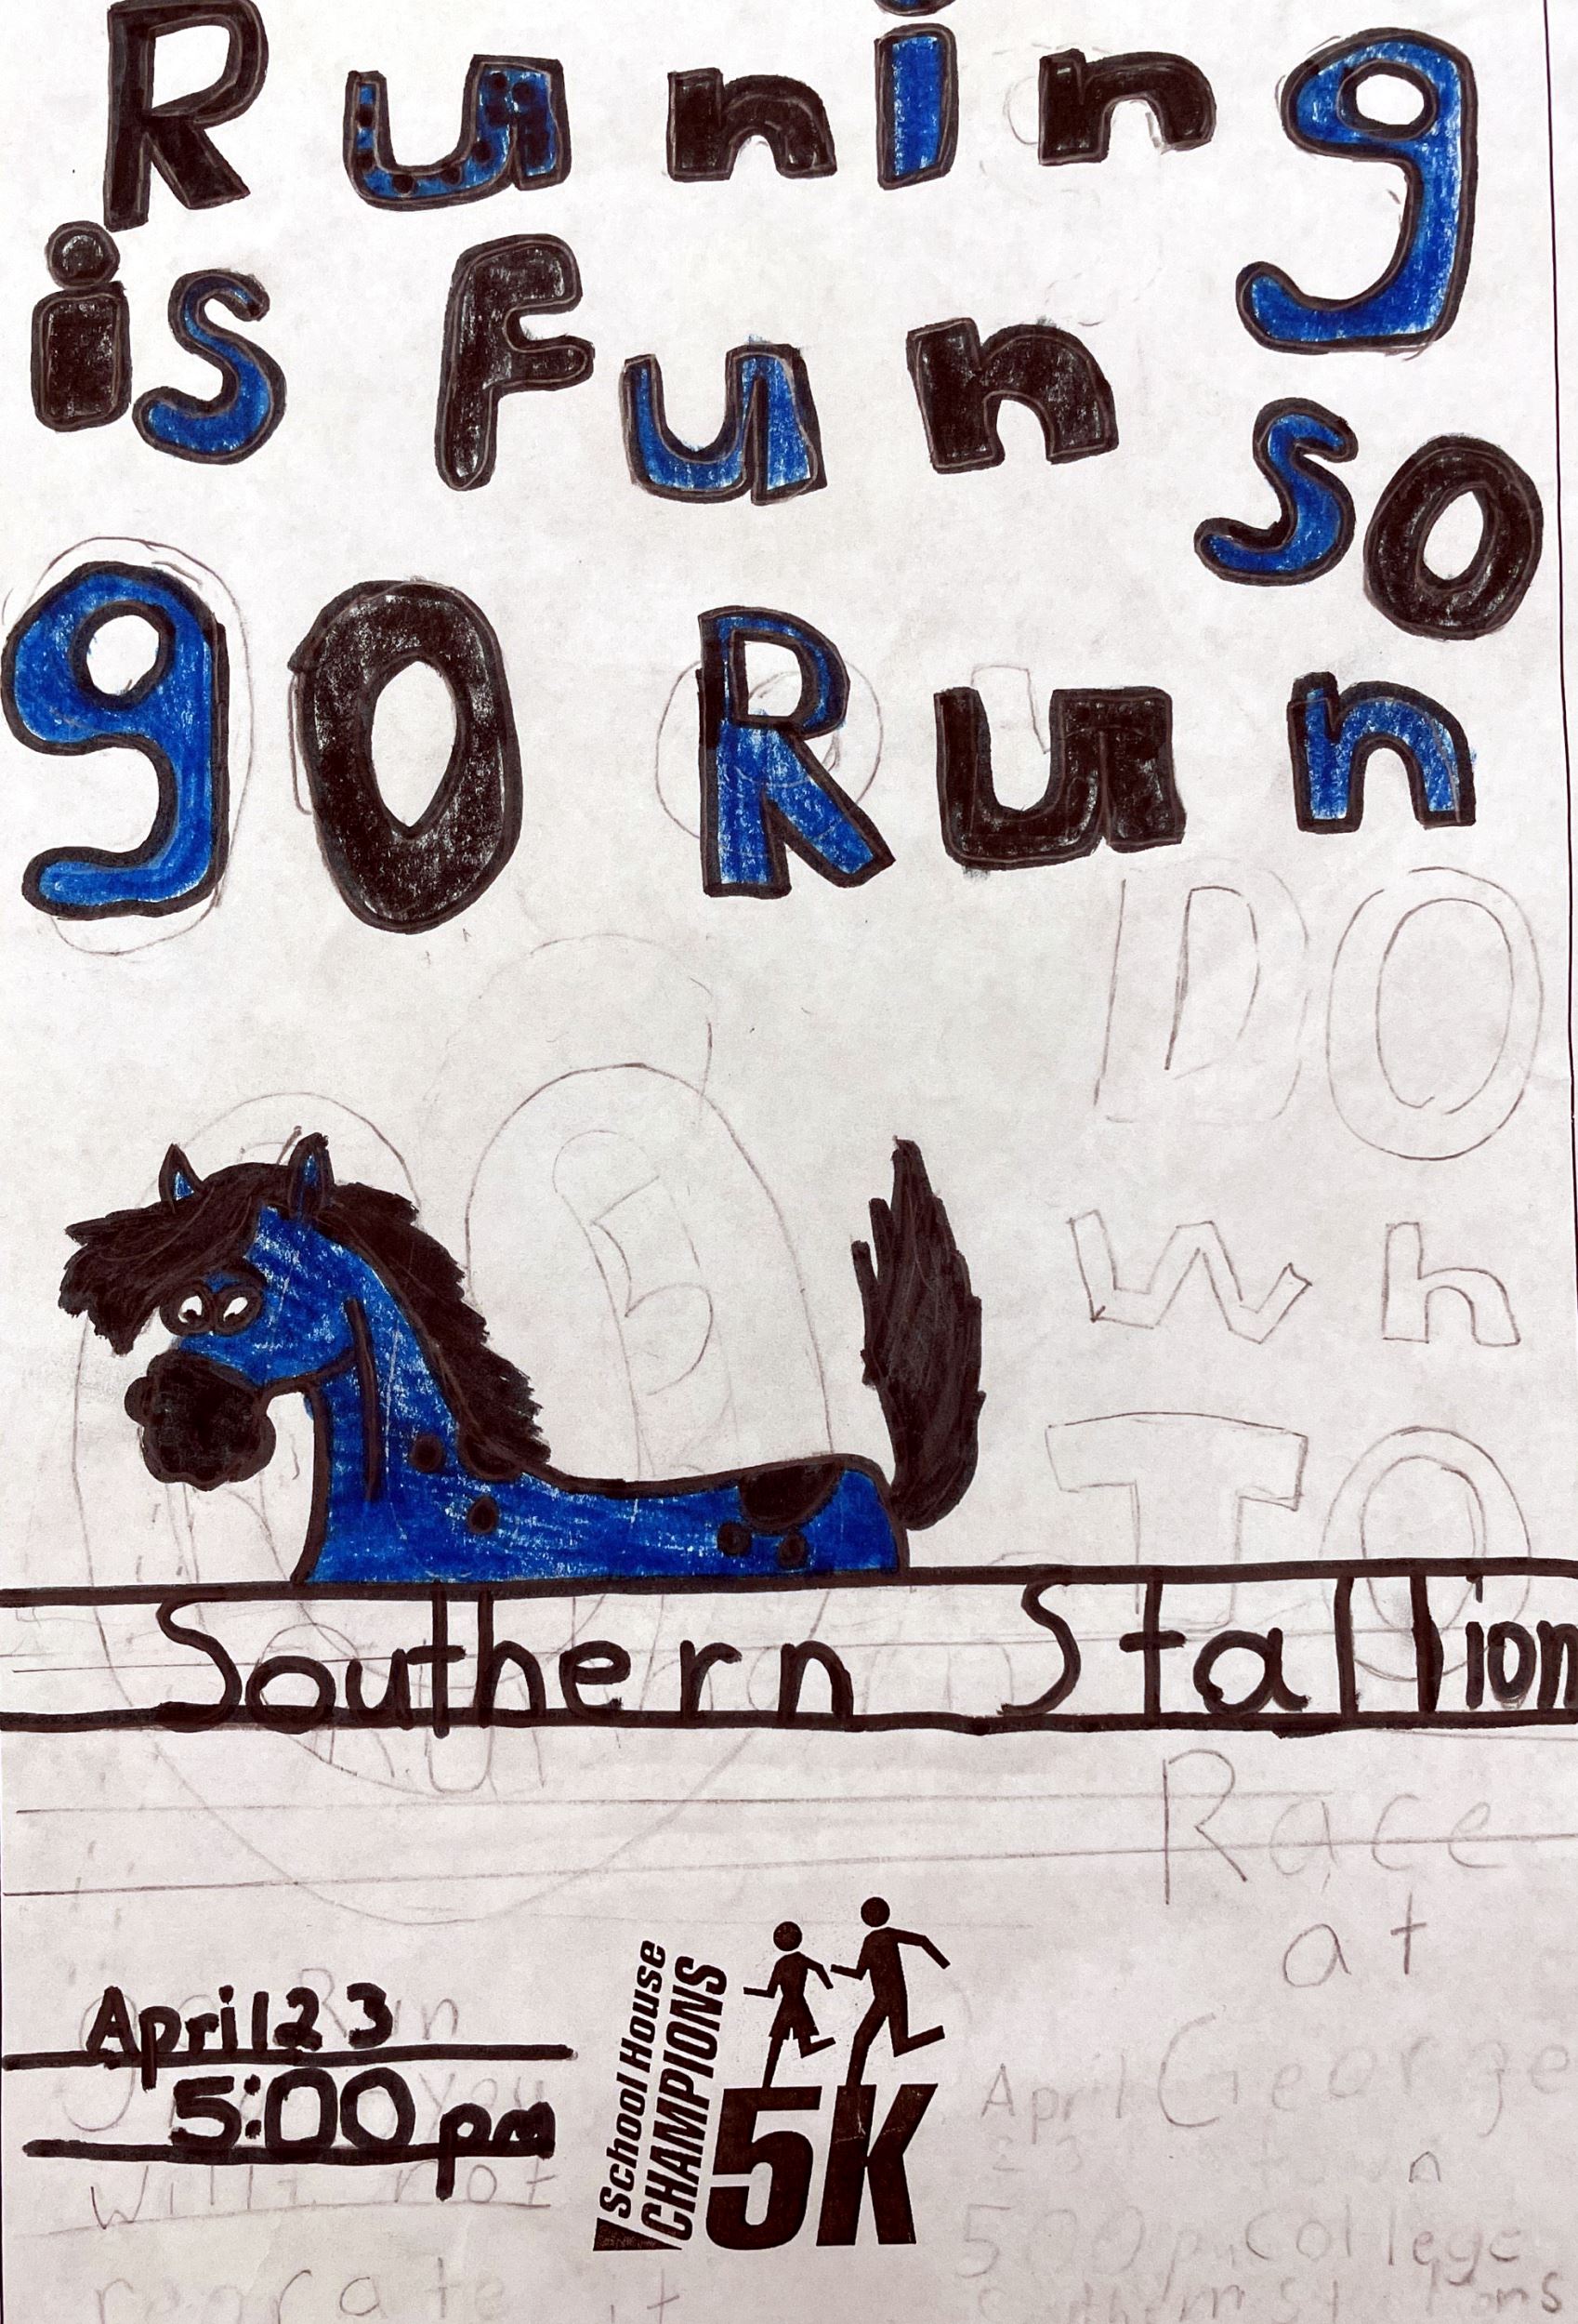 Runing
is Fun
so
go Run
DO
Wn
TO
Southern Stallion
Race
at
April 23
5:00 pm
School House
CHAMPIONS
5K
George
April
23
n
College
Run
you
will not
rograte it